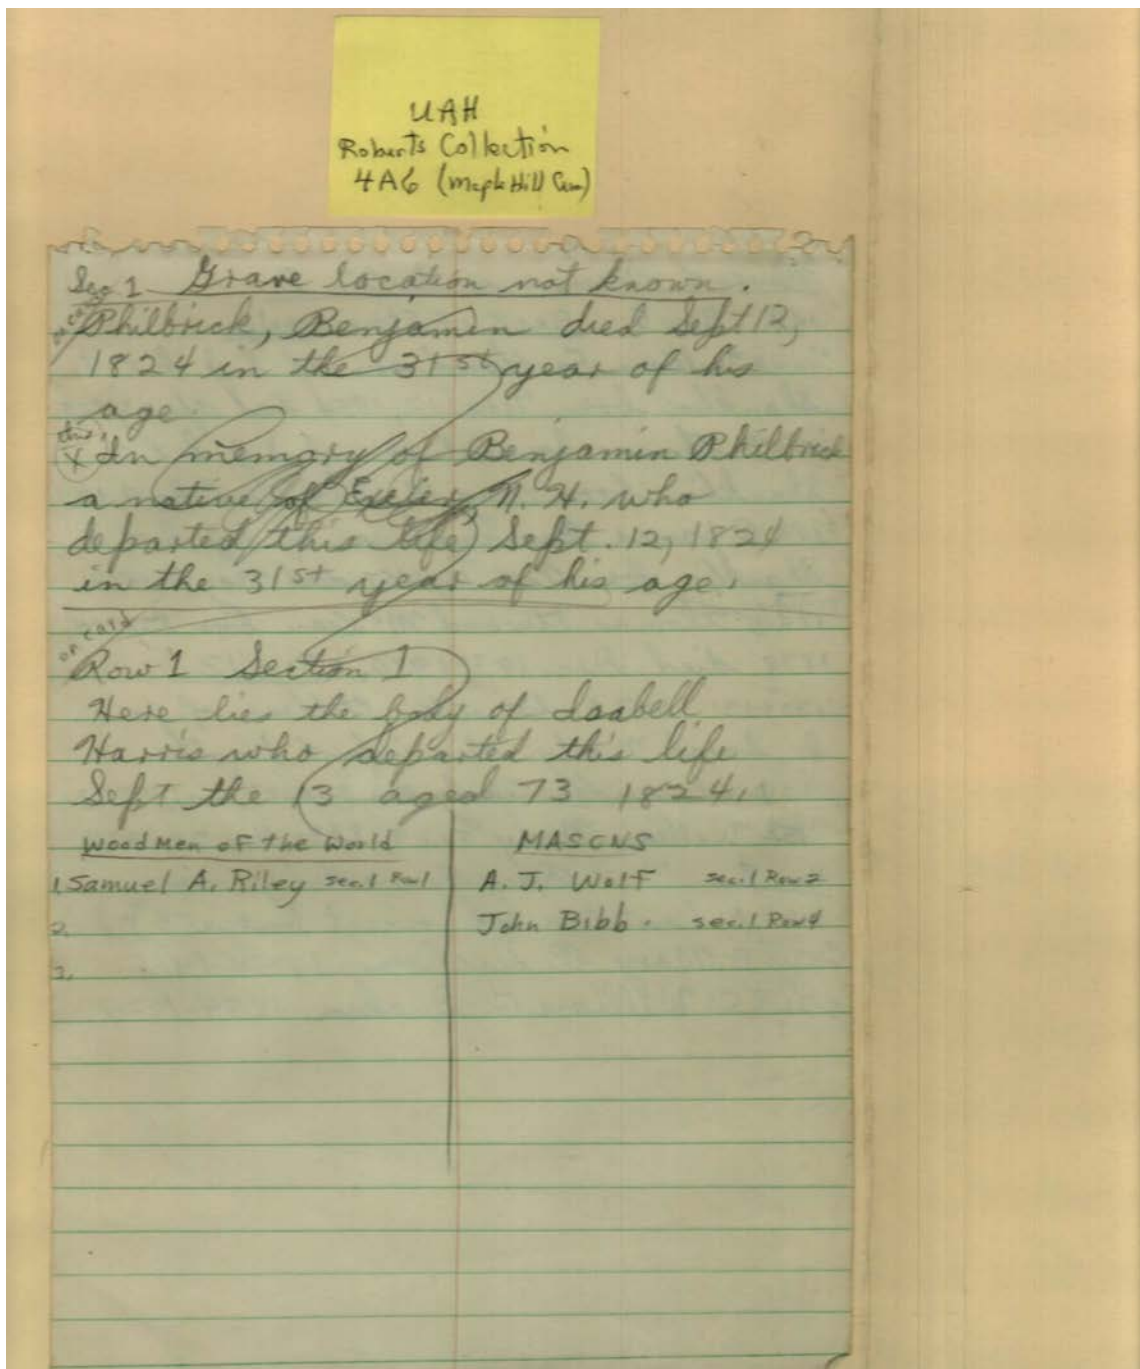 UAH
Roberts Collection
4A6 (Maple Hill Cem)
Sec 1 Grave location not known.
Philbrick, Benjamin died Sept 12,
1824 in the 31st year of his
age.
X In memory of Benjamin Philbrick
a native of Exeter, N. H. who
departed this life Sept. 12, 1824
in the 31st year of his age.
on card
Row 1 Section 1
Here lies the body of Isabell
Harris who departed this life
Sept the 13 aged 73 1824.
Woodmen of the World
MASONS
1. Samuel A. Riley sec. 1 Row 1
A. J. Wolf sec. 1 Row 2
2.
John Bibb. sec. 1 Row 4
3.